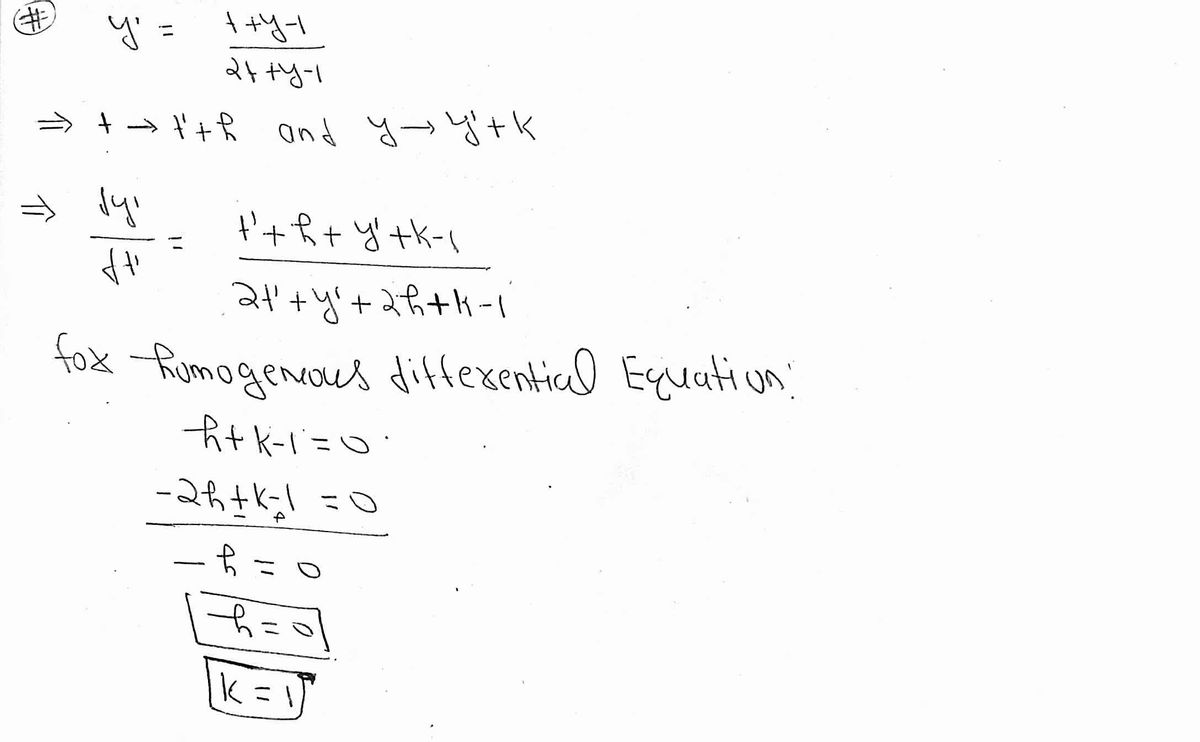 # y' = t+y-1 / 2t+y-1
⇒ t → t'+h and y → y'+k
⇒ dy'/dt' = t'+h+y'+k-1 / 2t'+y'+2h+k-1
for homogeneous differential Equation:
h+k-1=0
-2h±k-1=0
-h=0
h=0
k=1